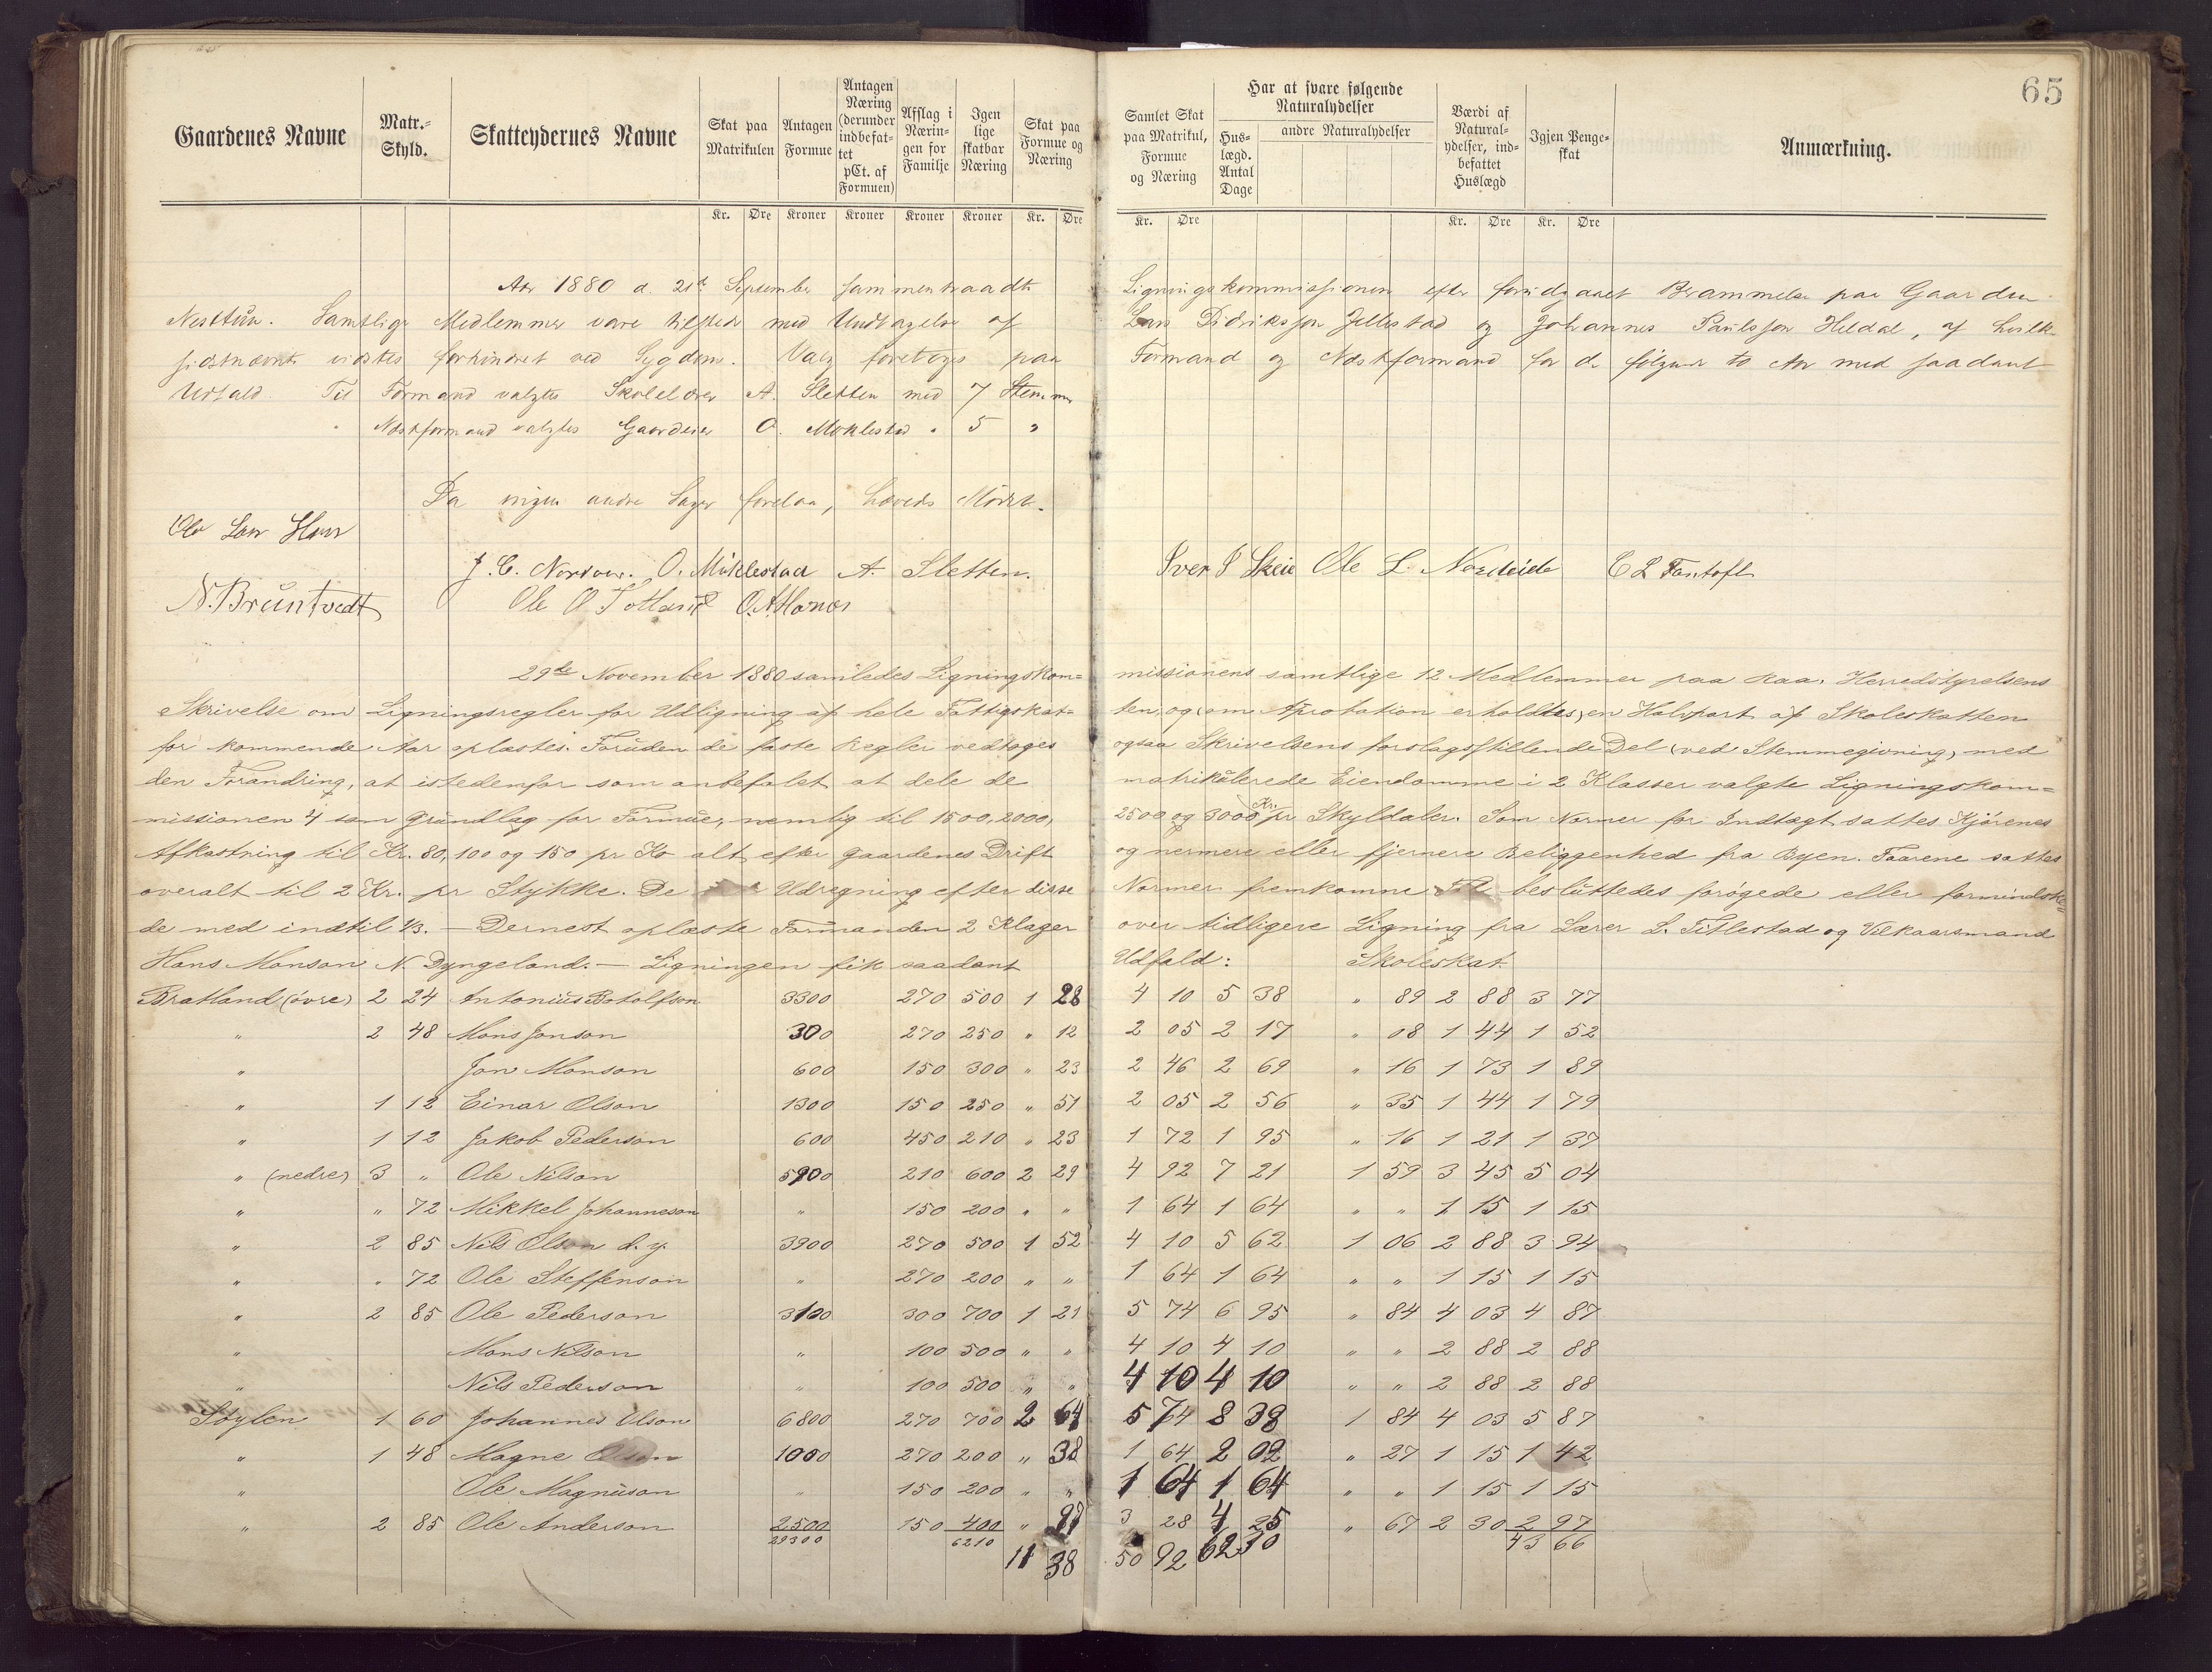 65
Gaardenes Navne | Matr.-Skyld. | Skatteydernes Navne | Skat paa Matrikulen | Antagen Formue | Antagen Næring (derunder indbefattet pCt. af Formuen) | Afslag i Næringen for Familje | Igen lige skatbar Næring | Skat paa Formue og Næring | Samlet Skat paa Matrikul, Formue og Næring | Har at svare følgende Naturalydelser | Huslægd. Antal Dage | andre Naturalydelser | Værdi af Naturalydelser, indbefattet Huslægd | Igjen Pengeskat | Anmærkning.
Kr. | Øre | Kroner | Kroner | Kroner | Kroner | Kr. | Øre | Kr. | Øre | Kr. | Øre | Kr. | Øre
Aar 1880 d. 21de September sammentraadte Ligningskommissionen efter forudgaaet Berammelse paa Gaarden
Nesttun. Samtlige Medlemmer vare tilstede med Undtagelse af Lars Didriksson Jellestad og Johannes Paulsson Heldal, af hvilke
sidstnævnte vidstes forhindret ved Sygdom. Valg foretoges paa Formand og Næstformand for de følgende to Aar med saadant
Udfald. Til Formand valgtes Skolelærer A. Sletten med 7 Stemmer
" Næstformand valgtes Gaardeier O. Miklestad " 5 "
Da ingen andre Sager forelaa, hævedes Mødet.
J. C. Nordvær. O. Miklestad A. Sletten. Sver P Skeie Ole L. Nordeide C L Fantoft
N. Bruntvedt Ole O Totland
29de November 1880 samledes Ligningskommissionens samtlige 12 Medlemmer paa Raa. Herredstyrelsens
Skrivelse om Ligningsregler for Udligning af hele Fattigskatten, og (om Aprobation erholdtes) en Halvpart af Skoleskatten
for kommende Aar oplæstes. Foruden de faste Regler vedtoges ogsaa Skrivelsens forslagsstillende Del (ved Stemmegivning) med
den Forandring, at istedenfor som anbefalet at dele de matrikulerede Eiendomme i 2 Klasser valgte Ligningskom=
missionen 4 som Grundlag for Formue, nemlig til 1500, 2000, 2500 og 3000 Kr. pr Skyldaler. Som Normer for Indtægt sattes Kjørenes
Afkastning til Kr. 80, 100 og 150 pr Ko alt efter Gaardenes Drift og nermere eller fjernere Beliggenhed fra Byen. Faarene sattes
overalt til 2 Kr. pr Stykke. De Udregning efter disse Normer fremkomne besluttedes forøgede eller formindske=
de med indtil 1/3. — Dernest oplæste Formanden 2 Klager over tidligere Ligning fra Lærer L. Titlestad og Vilkaarsmand
Hans Monson N Dyngeland. — Ligningen fik saadant Udfald: Skoleskat.
Bratland (øvre) 2 24 Antonius Botolfson 3300 270 500 1 28 4 10 5 38 " 89 2 88 3 77
" 2 48 Mons Jonson 300 270 250 " 12 2 05 2 17 " 08 1 44 1 52
" Jon Monson 600 150 300 " 23 2 46 2 69 " 16 1 73 1 89
" 1 12 Einar Olson 1300 150 250 " 51 2 05 2 56 " 35 1 44 1 79
" 1 12 Jakob Pederson 600 450 210 " 23 1 72 1 95 " 16 1 21 1 37
" (nedre) 3 " Ole Nilson 5900 210 600 2 29 4 92 7 21 1 59 3 45 5 04
" " 72 Mikkel Johanneson " 150 200 " " 1 64 1 64 " " 1 15 1 15
" 2 85 Nils Olson d. y. 3900 270 500 1 52 4 10 5 62 1 06 2 88 3 94
" " 72 Ole Steffenson " 270 200 " " 1 64 1 64 " " 1 15 1 15
" 2 85 Ole Pederson 3100 300 700 1 21 5 74 6 95 " 84 4 03 4 87
" Mons Nilson " 100 500 " " 4 10 4 10 " " 2 88 2 88
" Nils Pederson " 100 500 " " 4 10 4 10 " " 2 88 2 88
Søylen 1 60 Johannes Olson 6800 270 700 2 64 5 74 8 38 1 84 4 03 5 87
" 1 48 Magne Olson 1000 270 200 " 38 1 64 2 02 " 27 1 15 1 42
" Ole Magnuson " 150 200 " " 1 64 1 64 " " 1 15 1 15
" 2 85 Ole Anderson 2500 150 400 " 97 3 28 4 25 " 67 2 30 2 97
29300 6210 11 38 50 92 62 30 43 66